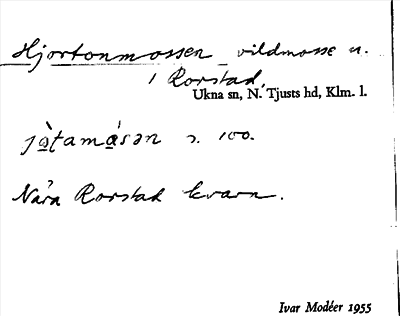 Hjortonmossen vildmosse n.
1 Rorstad,
Ukna sn, N. Tjusts hd, Klm. l.
jo̱ţama̱sən s. 100.
Nära Rorstad kvarn.
Ivar Modéer 1955